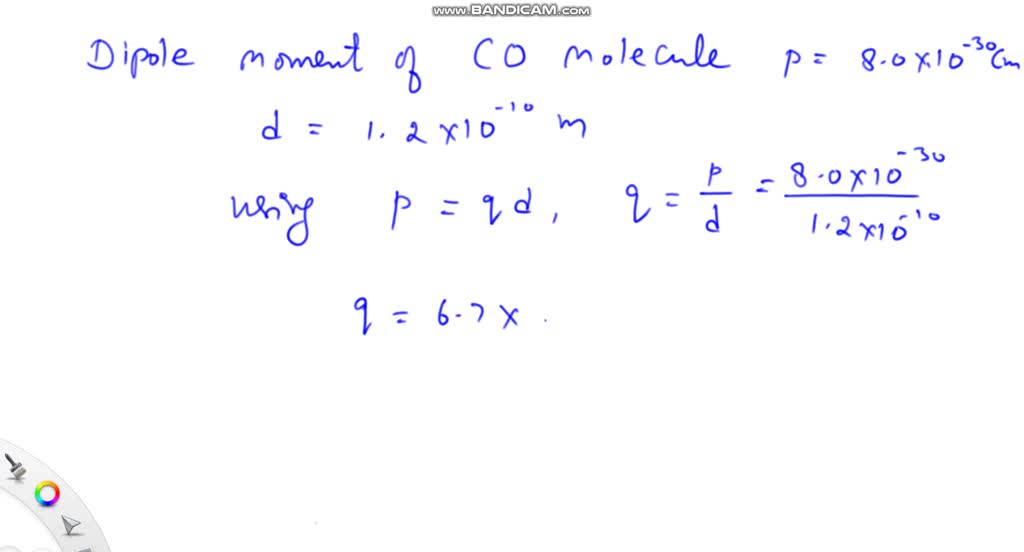 www.BANDICAM.com
Dipole moment of CO molecule p = 8.0×10⁻³⁰ Cm
d = 1.2×10⁻¹⁰ m
using p = qd, q = p/d = 8.0×10⁻³⁰/1.2×10⁻¹⁰
q = 6.7×